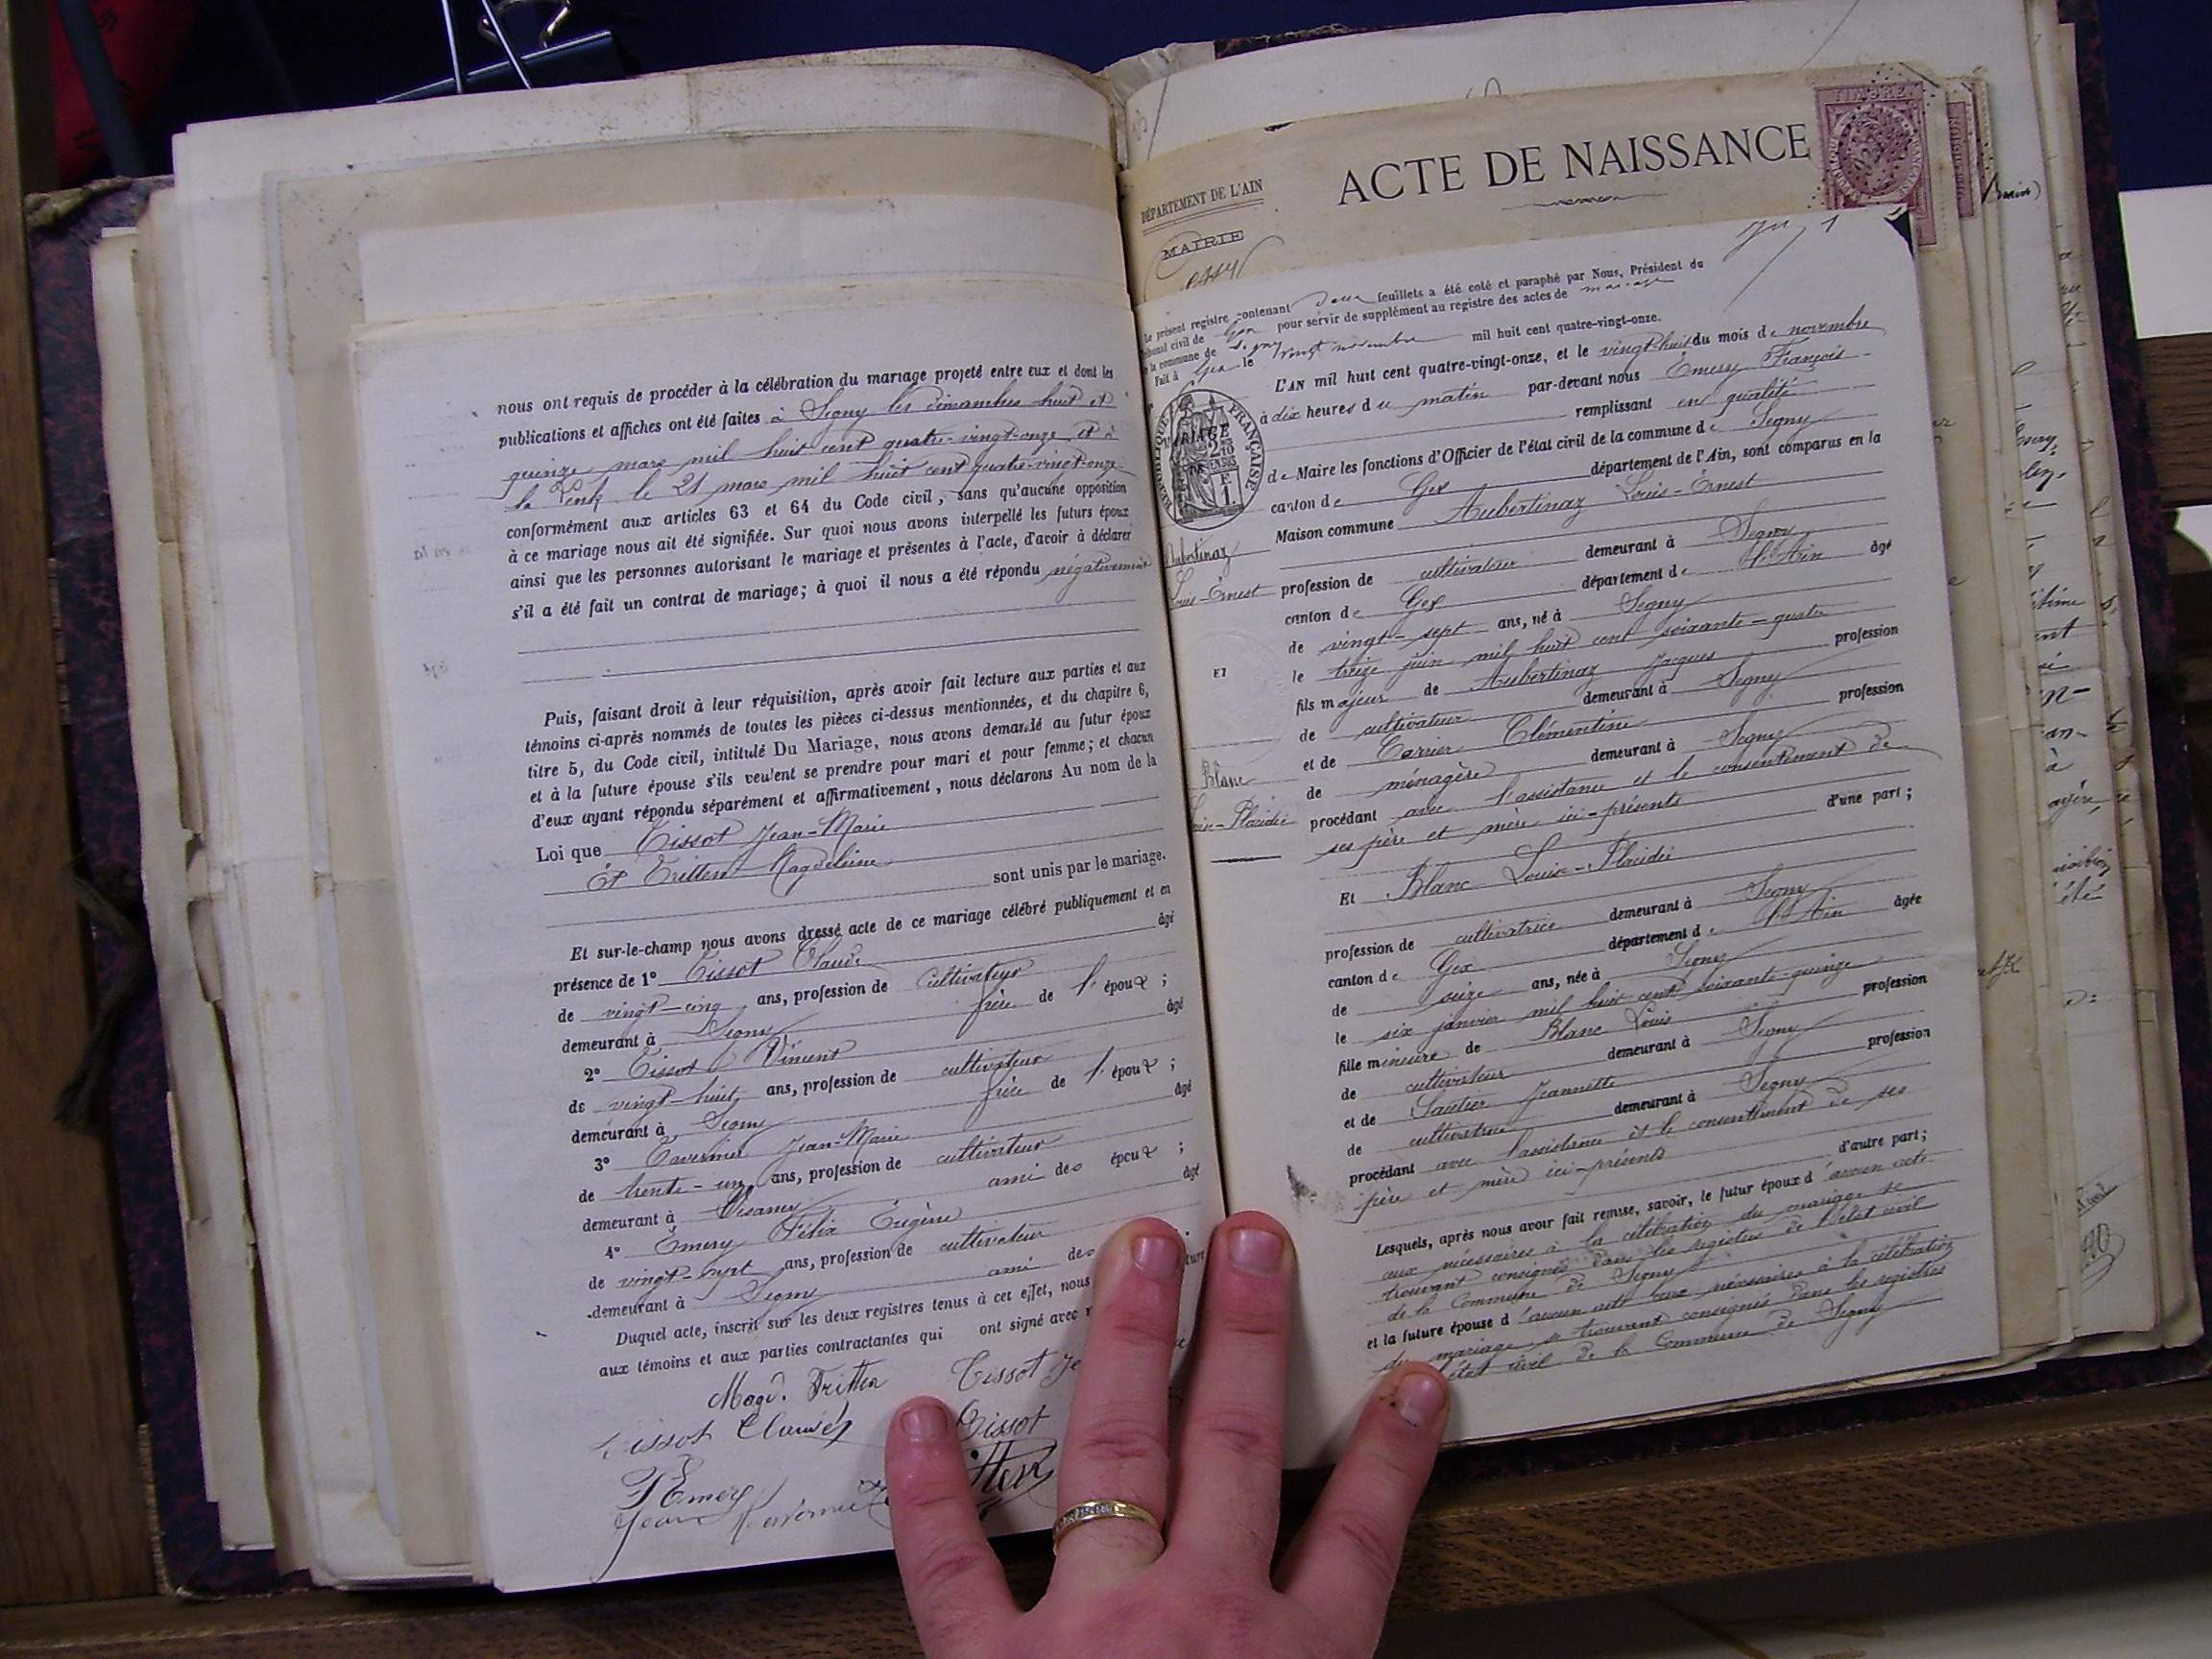 nous ont requis de procéder à la célébration du mariage projeté entre eux et dont les
publications et affiches ont été faites à Segny les dimanches huit et
quinze mars mil huit cent quatre-vingt-onze et à
le 21 mars mil huit cent quatre-vingt-onze
conformément aux articles 63 et 64 du Code civil, sans qu'aucune opposition
à ce mariage nous ait été signifiée. Sur quoi nous avons interpellé les futurs époux
ainsi que les personnes autorisant le mariage et présentes à l'acte, d'avoir à déclarer
s'il a été fait un contrat de mariage; à quoi il nous a été répondu négativement
Puis, faisant droit à leur réquisition, après avoir fait lecture aux parties et aux
témoins ci-après nommés de toutes les pièces ci-dessus mentionnées, et du chapitre 6,
titre 5, du Code civil, intitulé Du Mariage, nous avons demandé au futur époux
et à la future épouse s'ils veulent se prendre pour mari et pour femme; et chacun
d'eux ayant répondu séparément et affirmativement, nous déclarons Au nom de la
Loi que Tissot Jean-Marie
et Tritten Magdeleine
sont unis par le mariage.
Et sur-le-champ nous avons dressé acte de ce mariage célébré publiquement et en
présence de 1° Tissot Claude âgé
de vingt-cinq ans, profession de cultivateur
demeurant à Segny frère de l'époux;
2° Tissot Vincent âgé
de vingt-huit ans, profession de cultivateur
demeurant à Segny frère de l'époux;
3° Tavernier Jean-Marie âgé
de trente-un ans, profession de cultivateur
demeurant à ami des époux;
4° Émery Félix Eugène âgé
de vingt-sept ans, profession de cultivateur
demeurant à Segny ami des
Duquel acte, inscrit sur les deux registres tenus à cet effet, nous
aux témoins et aux parties contractantes qui ont signé avec
Magd. Tritten Tissot
Tissot Claude Tissot
Emery
Jean
ACTE DE NAISSANCE
TIMBRE
DÉPARTEMENT DE L'AIN
MAIRIE
Le présent registre contenant deux feuillets a été coté et paraphé par Nous, Président du
Tribunal civil de Gex pour servir de supplément au registre des actes de mariage
de la commune de Segny
Fait à Gex le vingt novembre mil huit cent quatre-vingt-onze.
L'AN mil huit cent quatre-vingt-onze, et le vingt-huit du mois de novembre
à dix heures du matin par-devant nous Émery François
remplissant en qualité
de Maire les fonctions d'Officier de l'état civil de la commune de Segny
canton de Gex département de l'Ain, sont comparus en la
Maison commune Aubertinaz Louis-Ernest
RÉPUBLIQUE FRANÇAISE
MARIAGE
Aubertinaz
Louis-Ernest
ET
Blanc
Louise-Placidie
profession de cultivateur demeurant à Segny
canton de Gex département de l'Ain âgé
de vingt-sept ans, né à Segny
le treize juin mil huit cent soixante-quatre
fils majeur de Aubertinaz Jacques profession
de cultivateur demeurant à Segny
et de Carrier Clémentine profession
de ménagère demeurant à Segny
procédant avec l'assistance et le consentement de
ses père et mère ici-présents d'une part;
Et Blanc Louise-Placidie
profession de cultivatrice demeurant à Segny
canton de Gex département de l'Ain âgée
de seize ans, née à Segny
le six janvier mil huit cent soixante-quinze
fille mineure de Blanc Louis profession
de cultivateur demeurant à Segny
et de Sautier Jeannette profession
de cultivatrice demeurant à Segny
procédant avec l'assistance et le consentement de ses
père et mère ici-présents d'autre part;
Lesquels, après nous avoir fait remise, savoir, le futur époux d'aucun acte
ceux nécessaires à la célébration du mariage se
trouvant consignés dans les registres de l'état civil
de la Commune de Segny
et la future épouse d'aucun acte ceux nécessaires à la célébration
du mariage se trouvant consignés dans les registres
état civil de la Commune de Segny